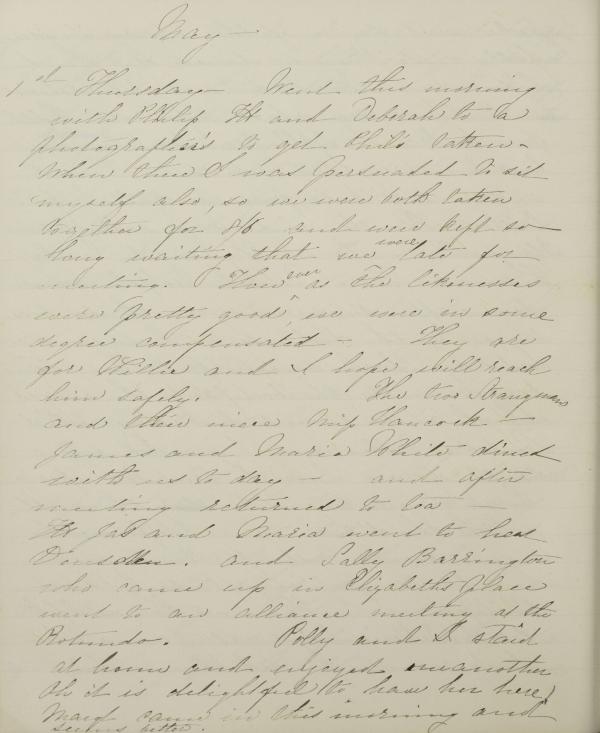 May —
1st Thursday — Went this morning
with Philip Ht and Deborah to a
photographer's to get Phil's taken —
When there I was persuaded to sit
myself also, so we were both taken
together for 8/6 and were kept so
long waiting that we were late for
meeting. However as the likenesses
were pretty good, we were in some
degree compensated — They are
for Willie and I hope will reach
him safely. The two Strangmans
and their niece Miss Hancock —
James and Maria White dined
with us to day — and after
meeting returned to tea —
Ht Jas and Maria went to hear
and Sally Barrington
who came up in Elizabeth's place
went to an alliance meeting at the
Rotundo. Polly and I staid
at home and enjoyed one another
Oh it is delightful to have her here,
Mary came in this morning and
seems better.